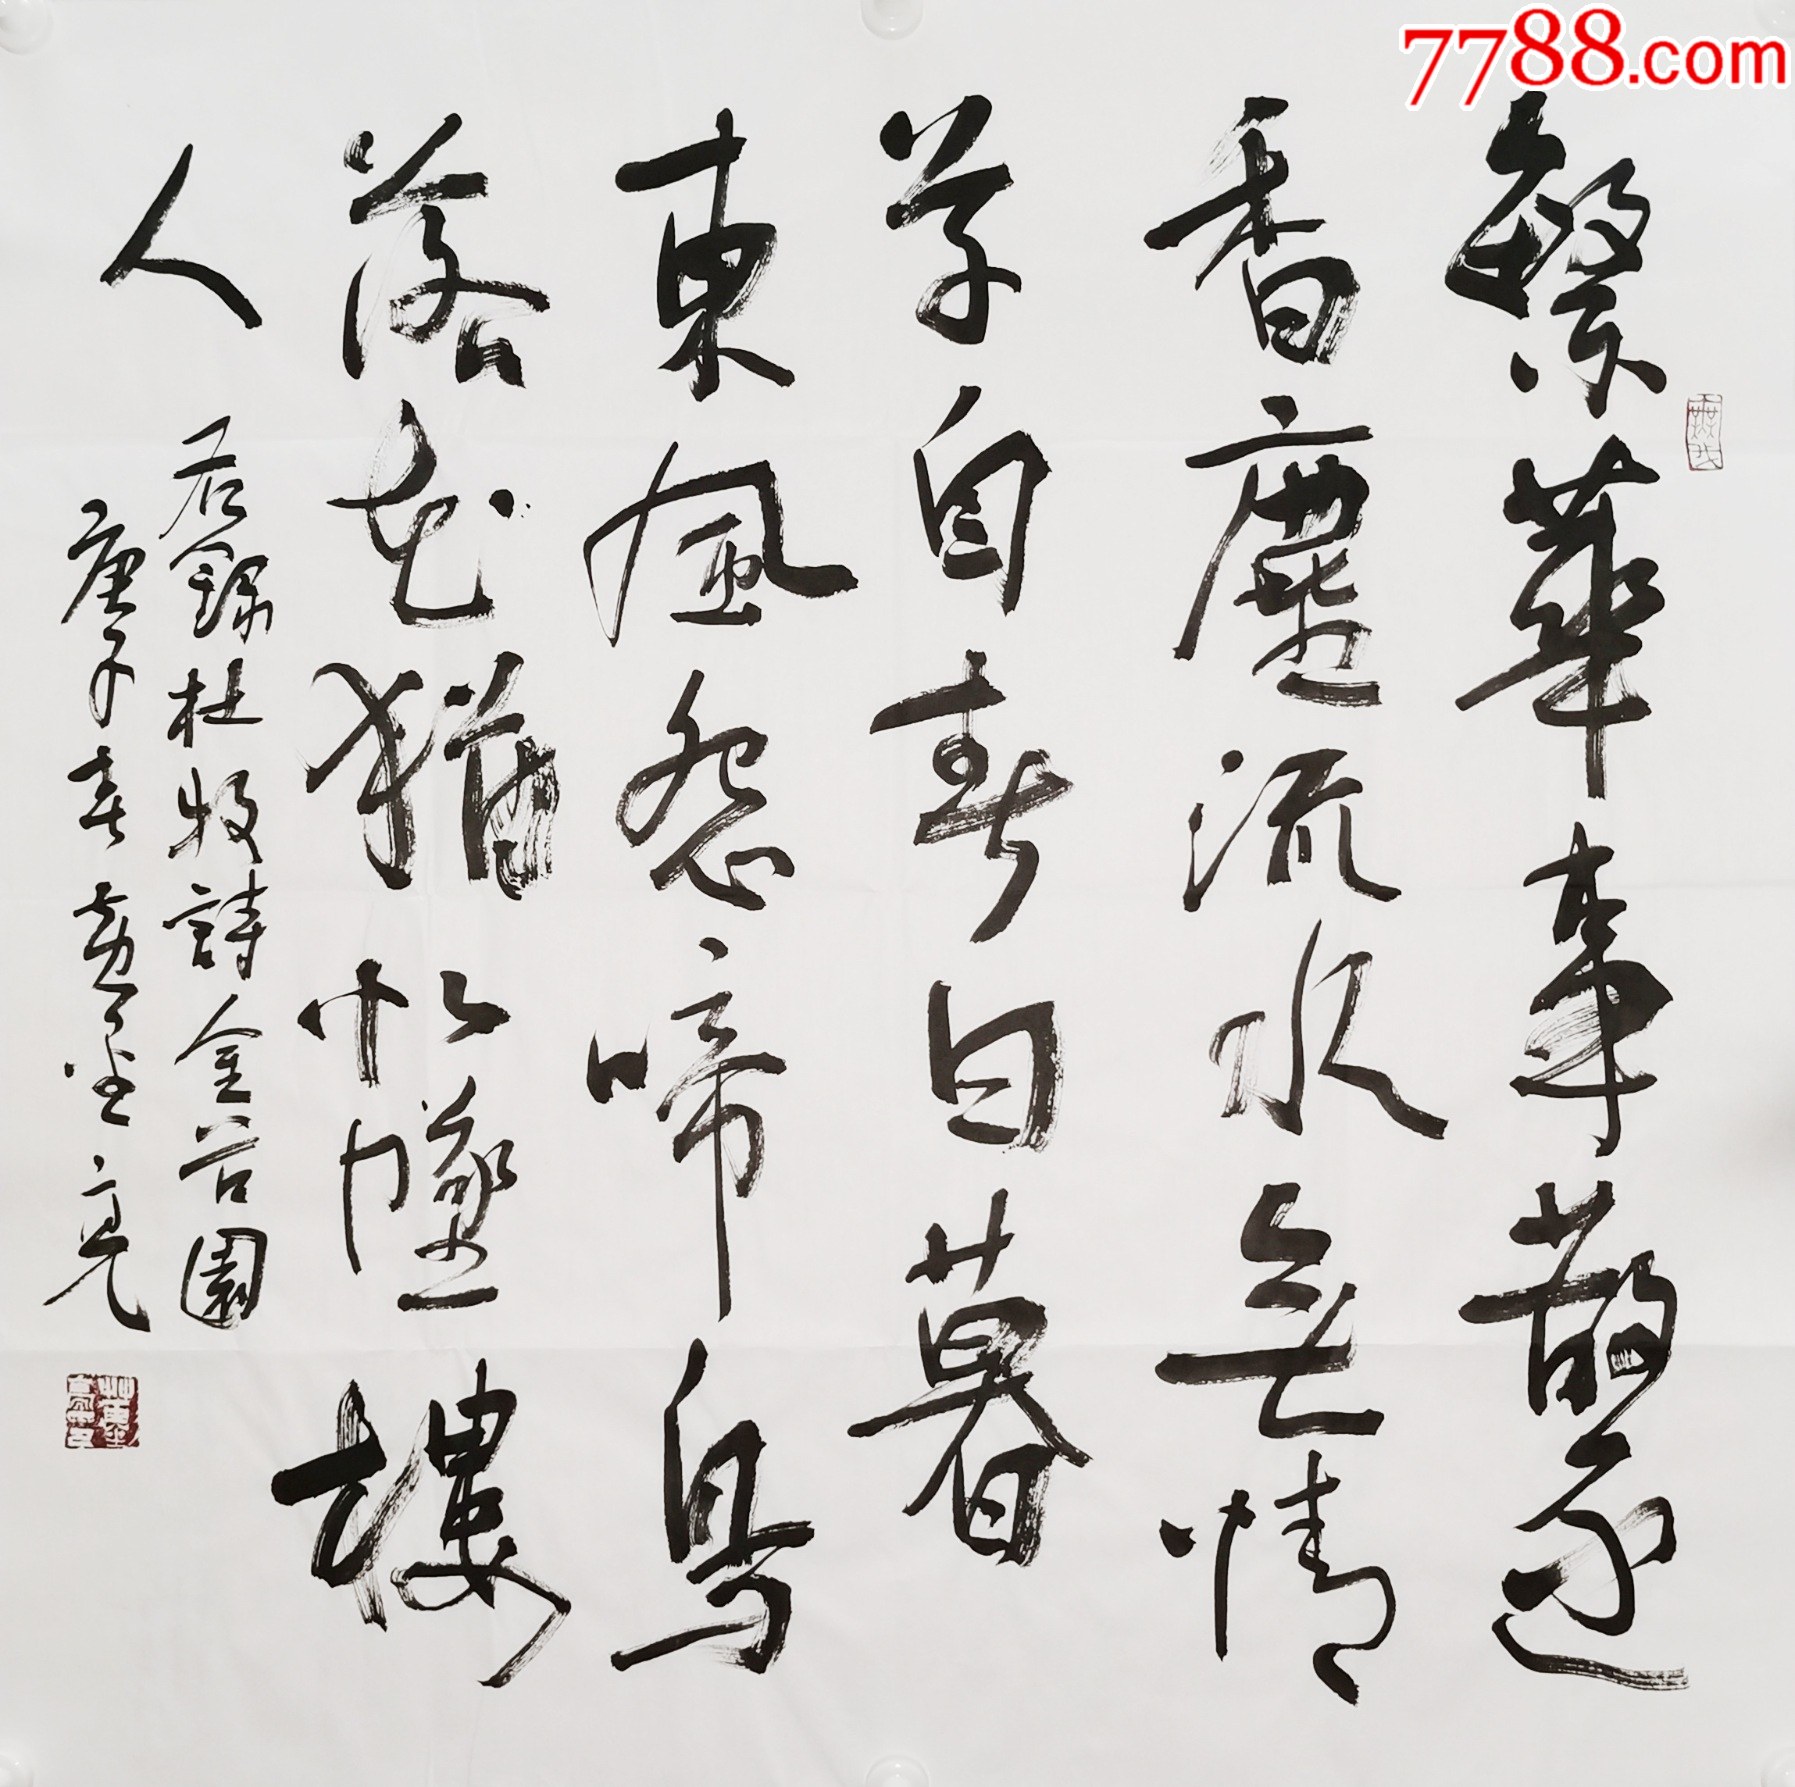 繁華事散逐
香塵流水無情
草自春日暮
東風怨啼鳥
落花猶似墜樓
人
右錄杜牧詩金谷園
庚子春
7788.com